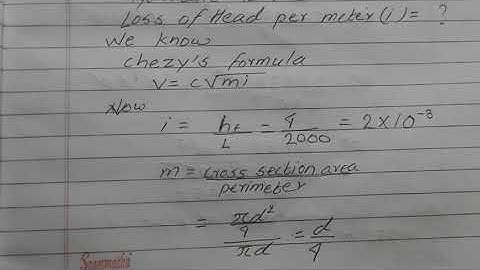 Loss of Head per meter (i) = ?
We know
Chezy's formula
V = C√mi
Now
i = hf/L = 4/2000 = 2×10⁻³
m = Cross section area
perimeter
= πd²/4 / πd = d/4